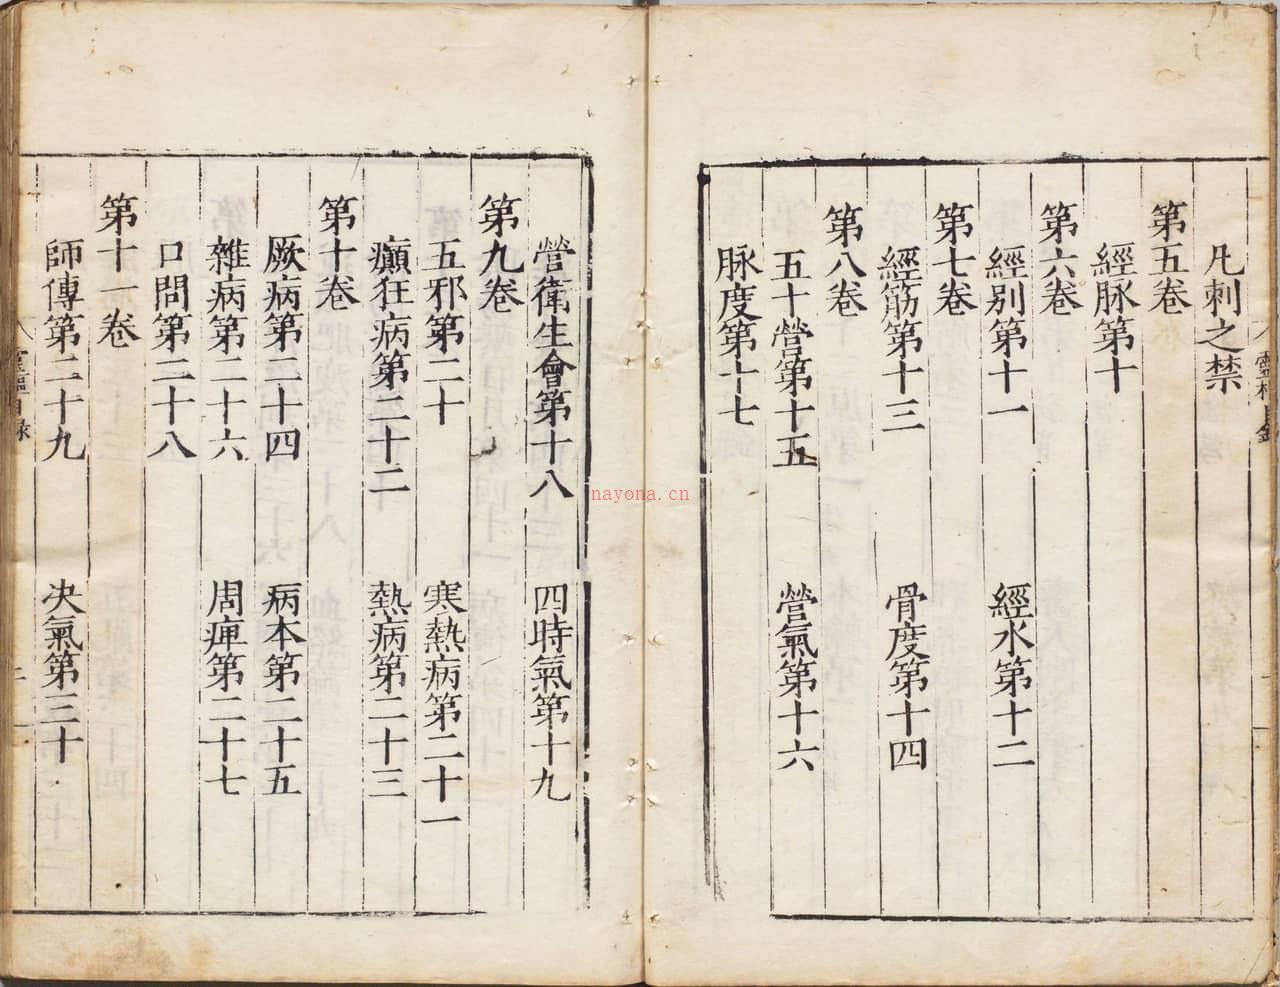 凢刺之禁
第五卷
經脉第十
第六卷
經别第十一　經水第十二
第七卷
經筋第十三　骨度第十四
第八卷
五十營第十五　營氣第十六
脉度第十七
營衛生會第十八　四時氣第十九
第九卷
五邪第二十　寒熱病第二十一
癲狂病第二十二　熱病第二十三
第十卷
厥病第二十四　病本第二十五
雜病第二十六　周痺第二十七
口問第二十八
第十一卷
師傳第二十九　决氣第三十
nayona.cn